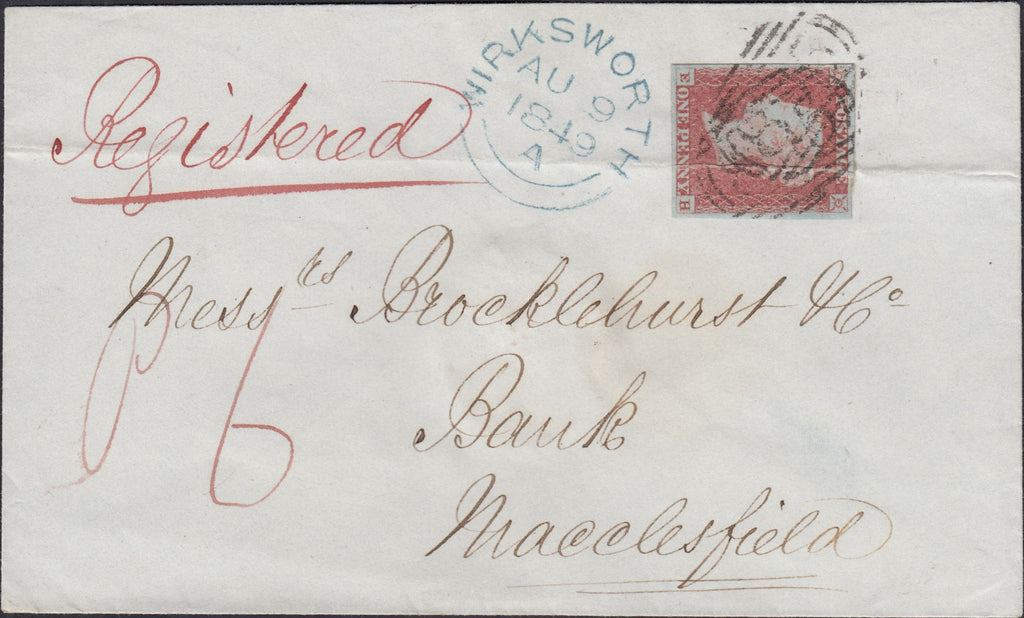 WIRKSWORTH
AU 9
1849
A
Registered
E ONE PENNY H
Mess.rs Brocklehurst & Co
P 6
Bank
Macclesfield